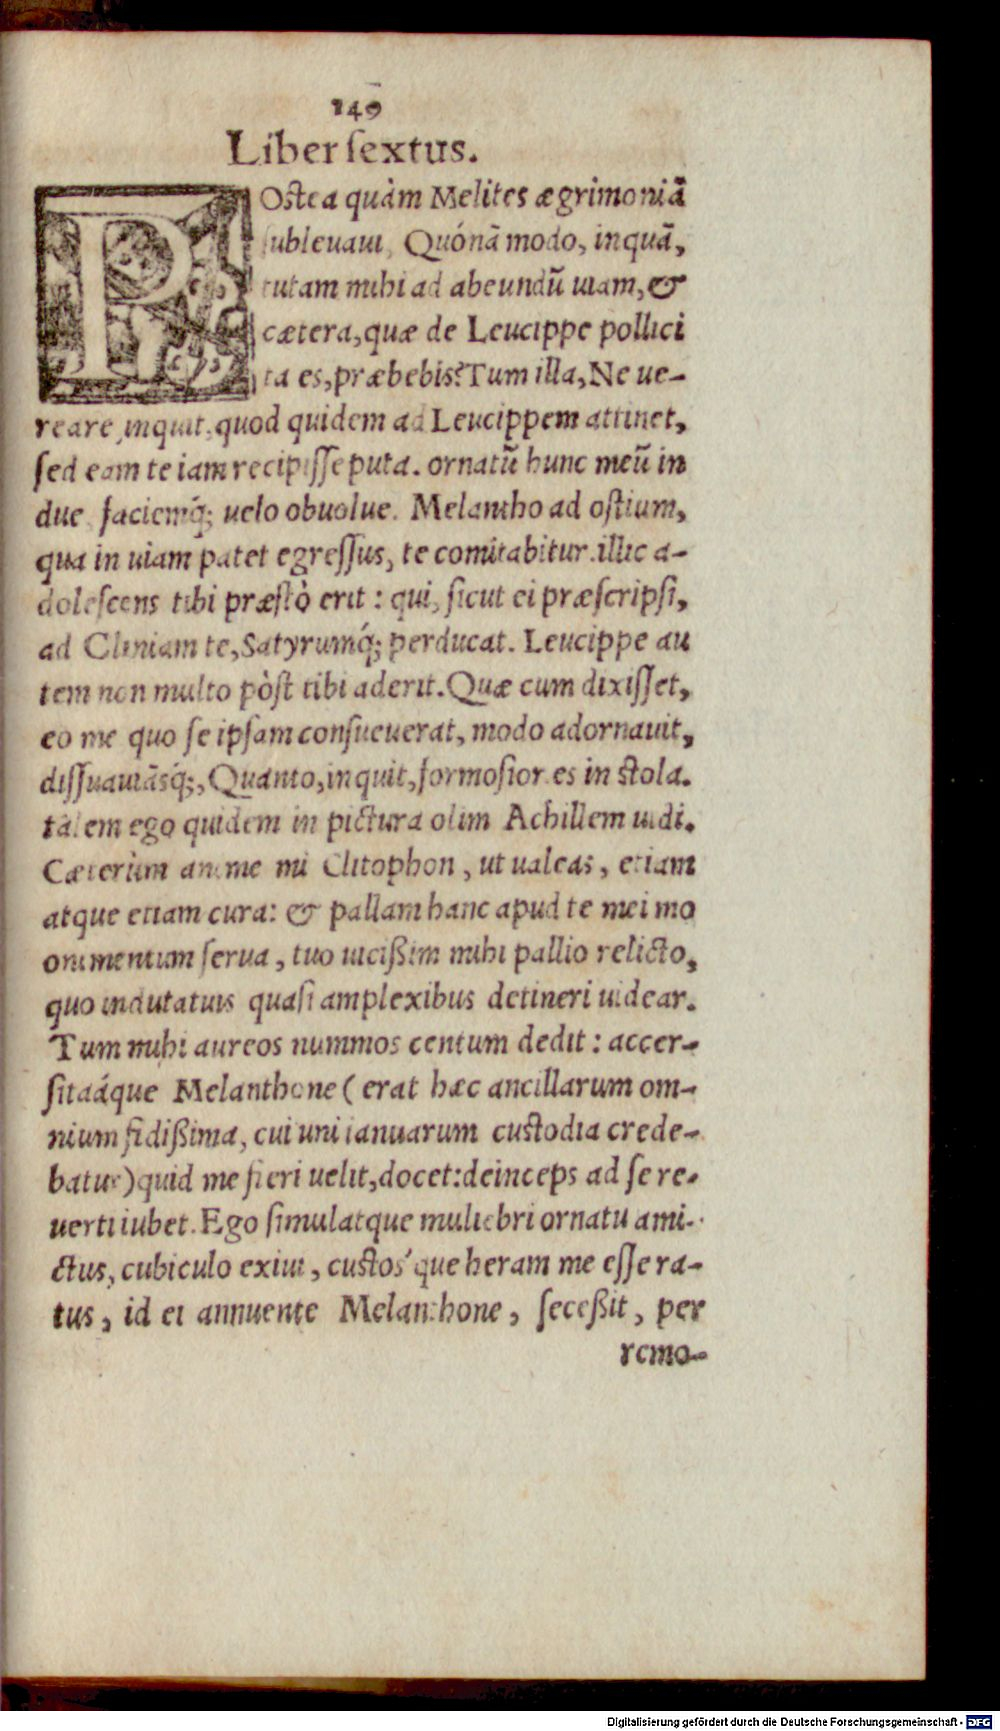 149
Liber sextus.
POstea quàm Melites ægrimoniā
subleuaui, Quónā modo, inquā,
tutam mihi ad abeundū uiam, &
cætera, quæ de Leucippe pollici
ta es, præbebis? Tum illa, Ne ue-
reare, inquit, quod quidem ad Leucippem attinet,
sed eam te iam recipisse puta. ornatū hunc meū in
due, faciemq́; uelo obuolue. Melantho ad ostium,
qua in uiam patet egressus, te comitabitur. illic a-
dolescens tibi præstò erit: qui, sicut ei præscripsi,
ad Cliniam te, Satyrumq́; perducat. Leucippe au
tem non multo pòst tibi aderit. Quæ cum dixisset,
eo me quo se ipsam consueuerat, modo adornauit,
dissuauiāsq́;, Quanto, inquit, formosior es in stola.
talem ego quidem in pictura olim Achillem uidi.
Cæterùm anime mi Clitophon, ut ualeas, etiam
atque etiam cura: & pallam hanc apud te mei mo
onimentum serua, tuo uicißim mihi pallio relicto,
quo induta tuis quasi amplexibus detineri uidear.
Tum mihi aureos nummos centum dedit: accer-
sitaáque Melanthone (erat hæc ancillarum om-
nium fidißima, cui uni ianuarum custodia crede-
batur) quid me fieri uelit, docet: deinceps ad se re-
uerti iubet. Ego simulatque muliebri ornatu ami-
ctus, cubiculo exiui, custos'que heram me esse ra-
tus, id ei annuente Melanthone, seceßit, per
remo-
Digitalisierung gefördert durch die Deutsche Forschungsgemeinschaft - DFG